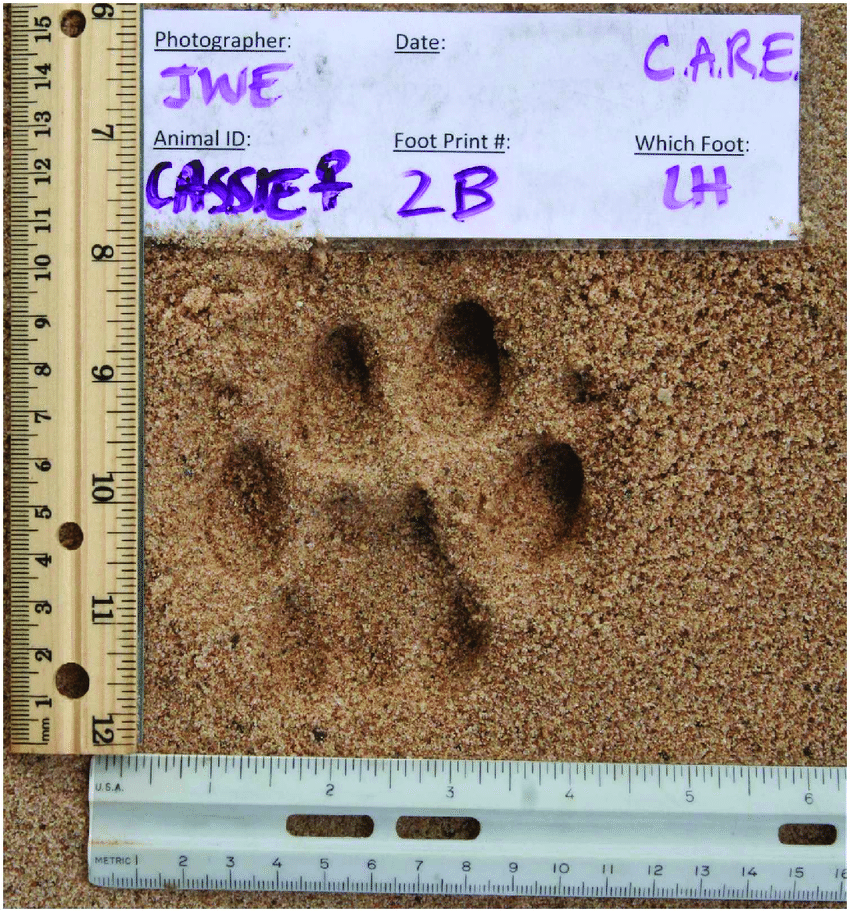 Photographer: Date: C.A.R.E.
JWE
Animal ID: Foot Print #: Which Foot:
CASSIE ♀ 2B LH
15 14 13 12 11 10 9 8 7 6 5 4 3 2 1 mm
6 7 8 9 10 11 12
U.S.A. 2 3 4 5 6
METRIC 1 2 3 4 5 6 7 8 9 10 11 12 13 14 15 16